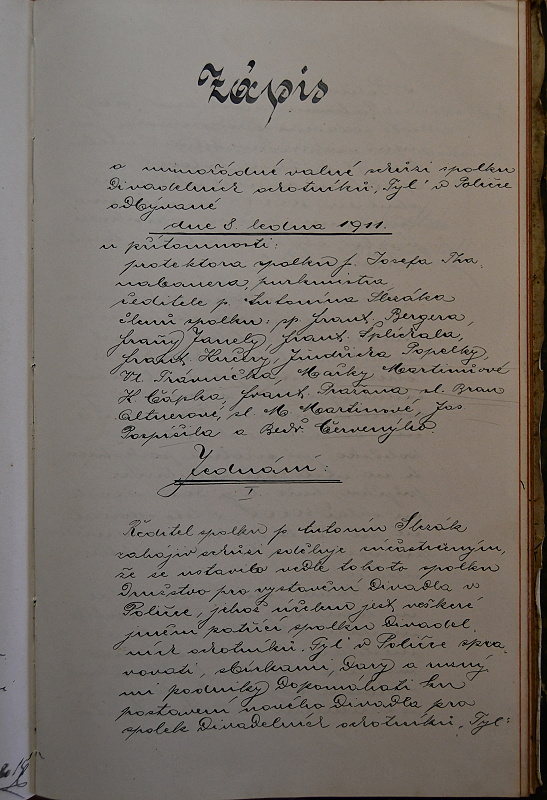 Zápis
o mimořádné valné schůzi spolku
Divadelních ochotníků „Tyl“ v Poličce
odbývané
dne 8. ledna 1911.
u přítomnosti:
protektora spolku p. Josefa
purkmistra
ředitele p. Antonína Slezáka
členů spolku: pp. Frant. Bergera,
Frant. Šplíchala,
Frant. Kučery, Jindřicha Popelky,
Vl. Trávníčka, Mařky Martinůové
K. Čápka, Frant. Pražana sl.
Altnerové, sl. M. Martinové, Jos.
Pospíšila a Bedř. Červeného.
Jednání:
I
Ředitel spolku p. Antonín Slezák
zahájiv schůzi sděluje súčastněným,
že se ustavilo vedle tohoto spolku
Družstvo pro vystavění Divadla v
Poličce, jehož účelem jest veškeré
jmění patřící spolku Divadel.
ních ochotníků „Tyl“ v Poličce spra-
vovati, sbírkami, Dary a
mi podniky Dopomáhati ku
postavení nového Divadla pro
spolek Divadelních ochotníků „Tyl“